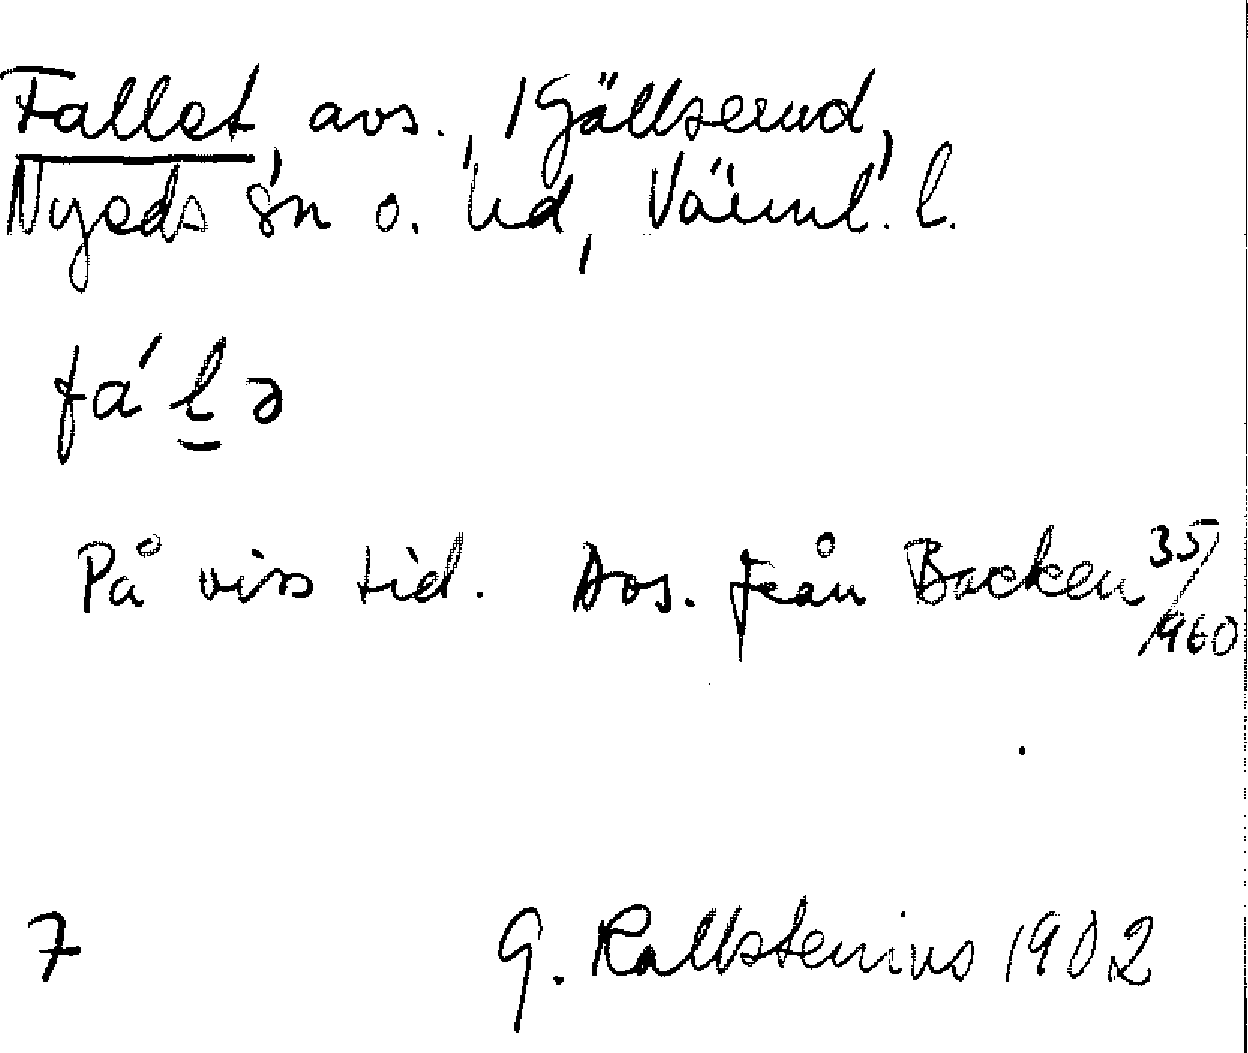 Fallet, avs., 1 Gällserud,
Nyeds sn o. hd, Värml. l.
fá l̲ ə
På viss tid. Avs. från Backen 35/1960
7 G. Kallstenius 1902